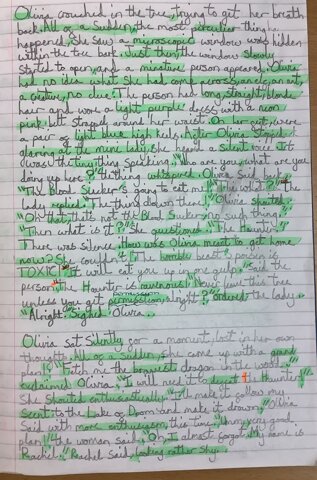 Olivia crouched in the tree, trying to get her breath
back. All of a Sudden, the most peculiar thing
happened. She Saw a microscopic window was hidden
within the tree bark. Just then the window slowly
Started to open, and a miniture person appeared. Olivia
had no idea what She had come across: an ant,
a creature, no clue. The person had long, straight, blonde
hair and wore a light purple dress with a neon
pink belt strapped around her waist. On her feet, were
a pair of light blue high heels. After Olivia Stopped
glaring at the mini lady, she heard a silent voice. It
was the tiny thing Speaking. "Who are you, what are you
doing up here?" thing whispered. Olivia Said back,
"The Blood Sucker's going to eat me!" "The what?" the
lady replied. "The thing down there!" Olivia Shouted.
"Oh that, thats not the Blood Sucker, no such thing."
"Then what is it?" She questioned. "The Haunter."
There was silence. How was Olivia meant to get home
now? She couldn't. "The horrible beast's poison is
TOXIC! It will eat you up in one gulp" Said the
person, "the Haunter is ravenous! Never leave this tree
unless you get permission, alright?" ordered the lady.
"Alright." Sighed Olivia.
Olivia Sat Silently for a moment, lost in her own
thoughts. All of a Sudden, she came up with a grand
plan! " me the bravest dragon in the woods,"
explained Olivia. "I will need it to defeat the Haunter!"
She Shouted enthusiastically. "I'll make it follow my
Scent to the Lake of Doom and make it drown," Olivia
Said with more enthusiasm this time. "Mmm, very good
plan!" the woman said, "Oh I almost forgot. My name is
Rachel." Rachel said, looking rather Shy.